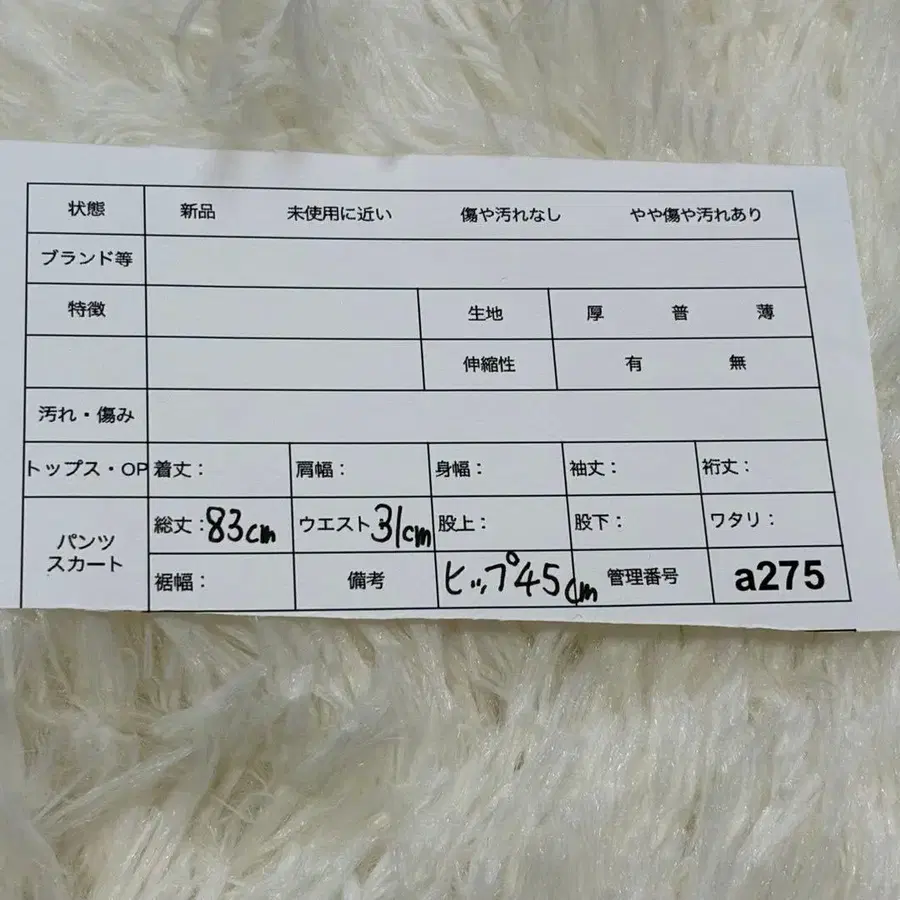 状態 新品 未使用に近い 傷や汚れなし やや傷や汚れあり
ブランド等
特徴 生地 厚 普 薄
伸縮性 有 無
汚れ・傷み
トップス・OP 着丈： 肩幅： 身幅： 袖丈： 裄丈：
パンツ スカート 総丈：83cm ウエスト 31cm 股上： 股下： ワタリ：
裾幅： 備考 ヒップ45cm 管理番号 a275